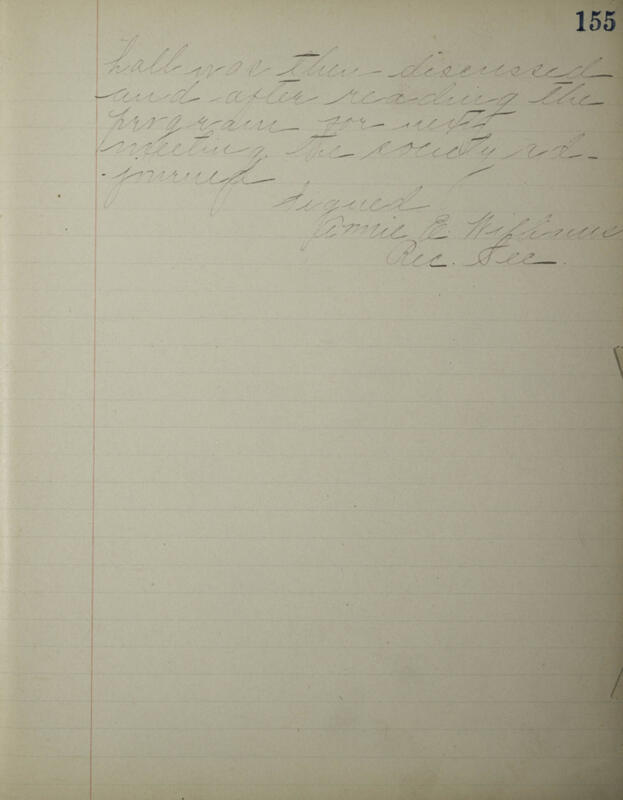 155
hall was then discussed
and after reading the
program for next
meeting the society ad-
journed
Signed
Annie E. Williams
Rec. Sec.